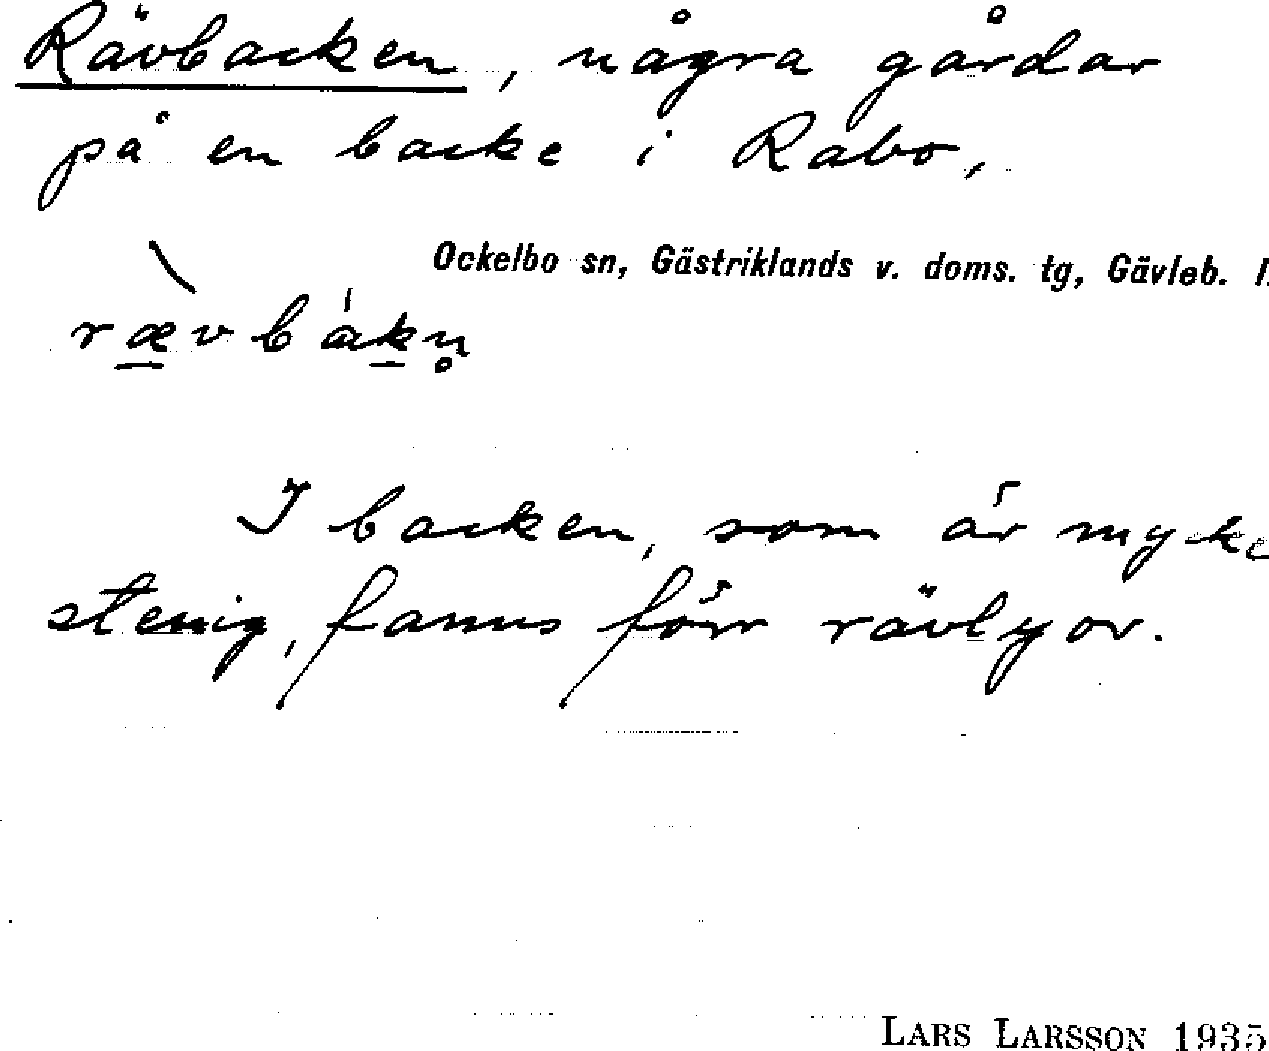 Rävbacken, några gårdar
på en backe i Rabo,
Ockelbo sn, Gästriklands v. doms. tg, Gävleb. l.
rævbákn̥
I backen, som är mycke
stenig, fanns förr rävlyor.
LARS LARSSON 1935